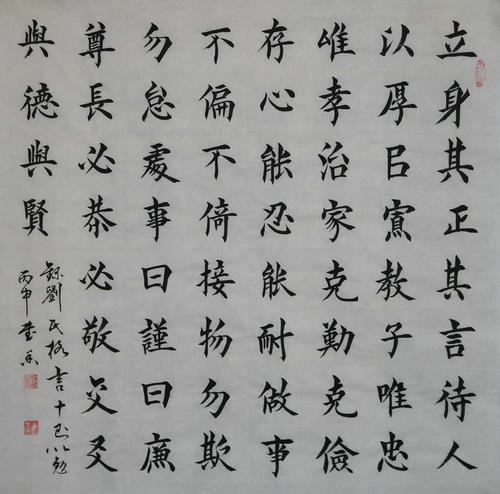 立身其正其言待人
以厚㠯寬教子唯忠
唯孝治家克勤克儉
存心能忍能耐做事
不偏不倚接物勿欺
勿怠處事曰謹曰廉
尊長必恭必敬交友
與德與賢
錄劉氏格言十以勉
丙申